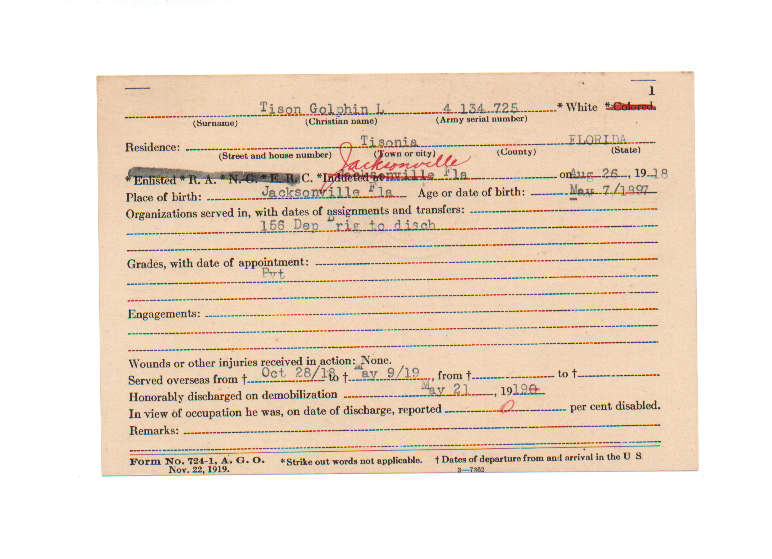 1
Tison Golphin L 4 134 725 * White * Colored.
(Surname) (Christian name) (Army serial number)
Residence: Tisonia FLORIDA
(Street and house number) (Town or city) (County) (State)
Jacksonville
* Enlisted * R. A. * N. G. * E. R. C. *Inducted at Jacksonville Fla on Aug 26, 19 18
Place of birth: Jacksonville Fla Age or date of birth: May 7/1897
Organizations served in, with dates of assignments and transfers:
156 Dep Brig to disch
Grades, with date of appointment:
Pvt
Engagements:
Wounds or other injuries received in action: None.
Served overseas from † Oct 28/18 to † May 9/19, from † to †
Honorably discharged on demobilization May 21, 19 19
In view of occupation he was, on date of discharge, reported 0 per cent disabled.
Remarks:
Form No. 724-1, A. G. O. *Strike out words not applicable. † Dates of departure from and arrival in the U S
Nov. 22, 1919. 3—7362